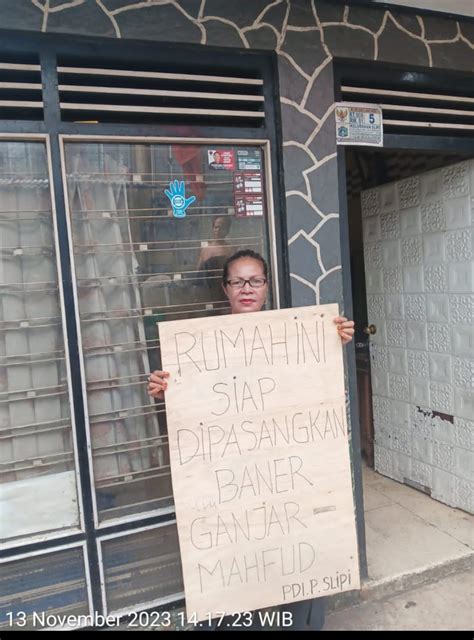 5
RUMAH INI
SIAP
DIPASANGKAN
BANER
GANJAR-
MAHFUD
PDI.P. SLIPI
13 November 2023 14.17.23 WIB